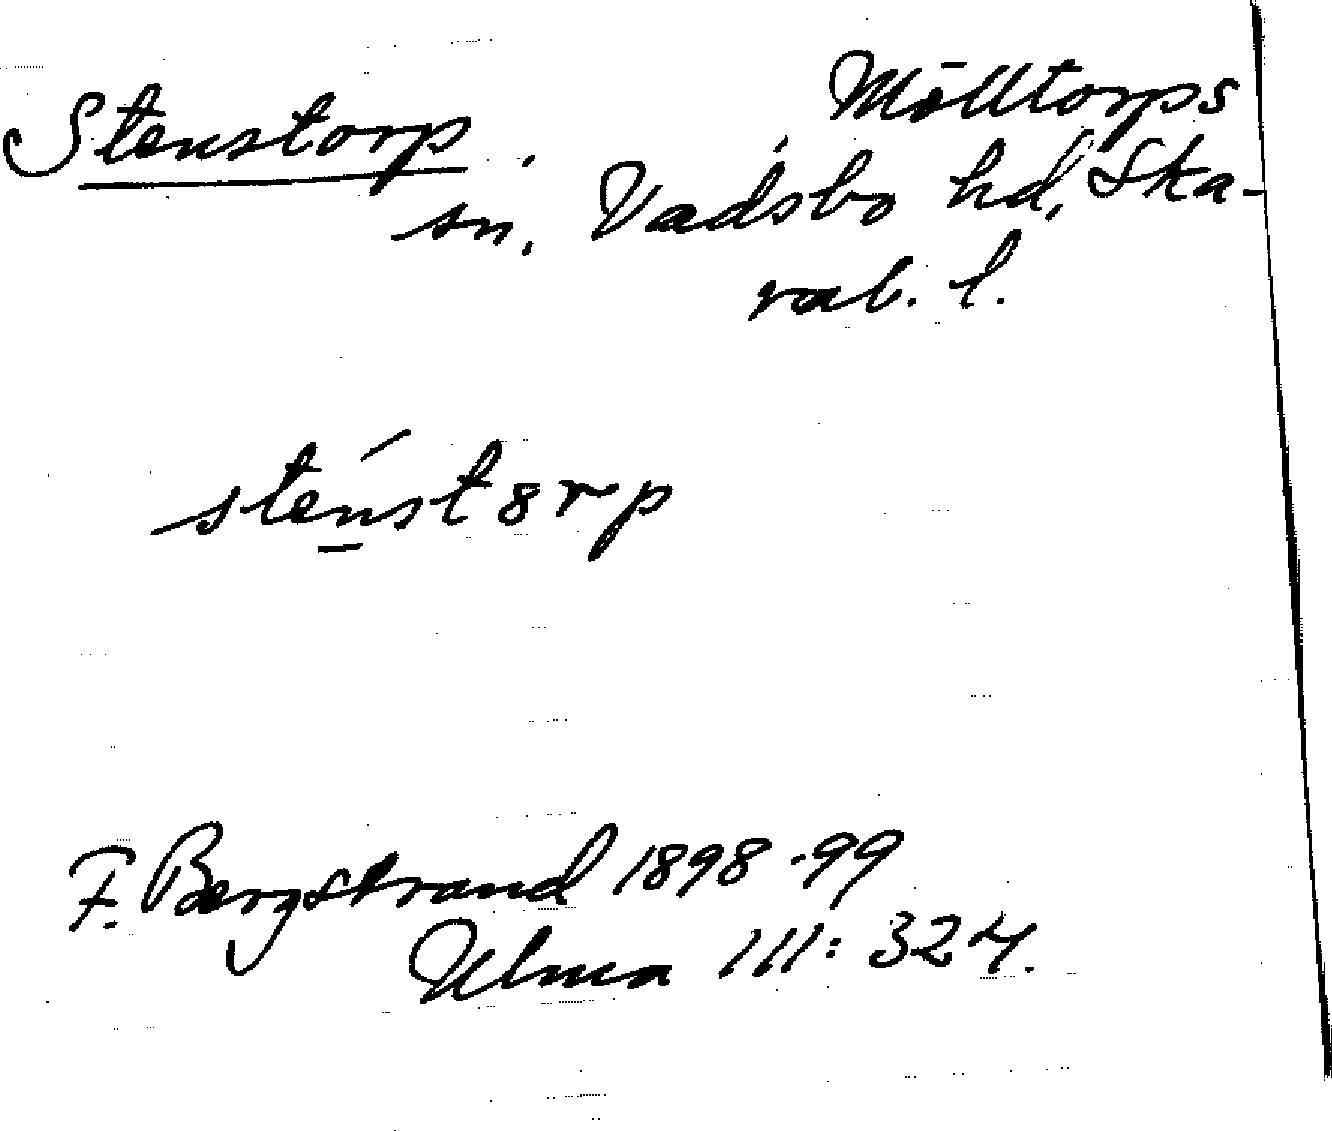 Stenstorp. Mölltorps
sn. Vadsbo hd, Ska-
rab. l.
sténst8rp
F. Bergstrand 1898-99
Ulma 111: 324.